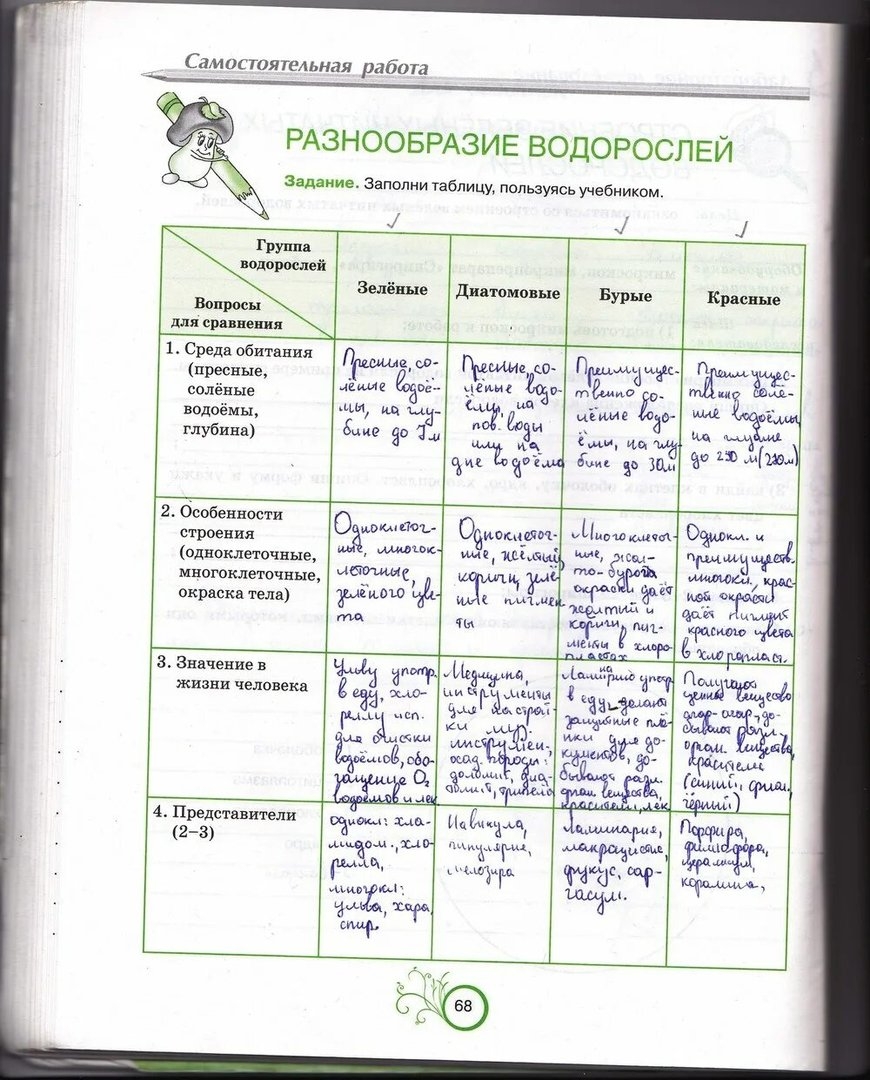 Самостоятельная работа
РАЗНООБРАЗИЕ ВОДОРОСЛЕЙ
Задание. Заполни таблицу, пользуясь учебником.
Группа
водорослей
Вопросы
для сравнения
Зелёные
Диатомовые
Бурые
Красные
1. Среда обитания
(пресные,
солёные
водоёмы,
глубина)
Пресные, со-
лёные водоё-
мы, на глу-
бине до 7 м
Пресные, со-
лёные водо-
ёмы, на
пов. воды
или на
дне водоёма
Преимущес-
твенно со-
лёные водо-
ёмы, на глу-
бине до 30м
Преимущес-
твенно солё-
ные водоёмы
на глубине
до 250 м
2. Особенности
строения
(одноклеточные,
многоклеточные,
окраска тела)
Одноклеточ-
ные, многок-
леточные,
зелёного цве-
та
Одноклеточ-
ные, жёлтый,
коричн, зелё-
ные пигмен
ты
Многоклеточ-
ные, жёл-
то-бурога
окраски даёт
жёлтый и
коричн. пиг-
менты в хлоро-
пластах
Однокл. и
преимуществ.
многокл. крас-
ной окраски
даёт пигмент
красного цвета
в хлоропласт.
3. Значение в
жизни человека
Ульву употр.
в еду, хло-
реллу исп.
для очистки
водоёмов, обо-
гащение O₂
водоёмов и лек.
Медицина,
инструменты
для настрой-
ки муз.
инструмен.,
осад. породы:
доломит, диа-
томит, трепела
Ламинарию употр.
в еду, делают
защитные плё-
нки для до-
кументов, до-
бывают разл.
орган. вещества,
красители, лек
Получают
ценное вещество
агар-агар, до-
бывают разл.
орган. вещества,
красители
(синий,
чёрный)
4. Представители
(2–3)
однокл: хла-
мидом., хло-
релла,
многокл:
ульва, хара,
спир.
Навикула,
пинулярие,
мелозира
Ламинария,
макроцистис,
фукус, сар-
гассум.
Порфира,
филлофора,
церамиум,
коралина,
68